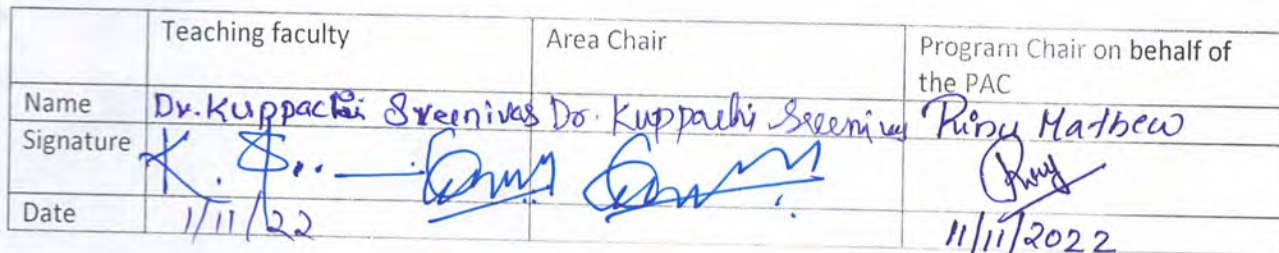 Teaching faculty Area Chair Program Chair on behalf of
the PAC
Name Dr. Kuppachi Sreenivas Dr. Kuppachi Sreenivas Mathew
Signature K.
Date 1/11/22 11/11/2022